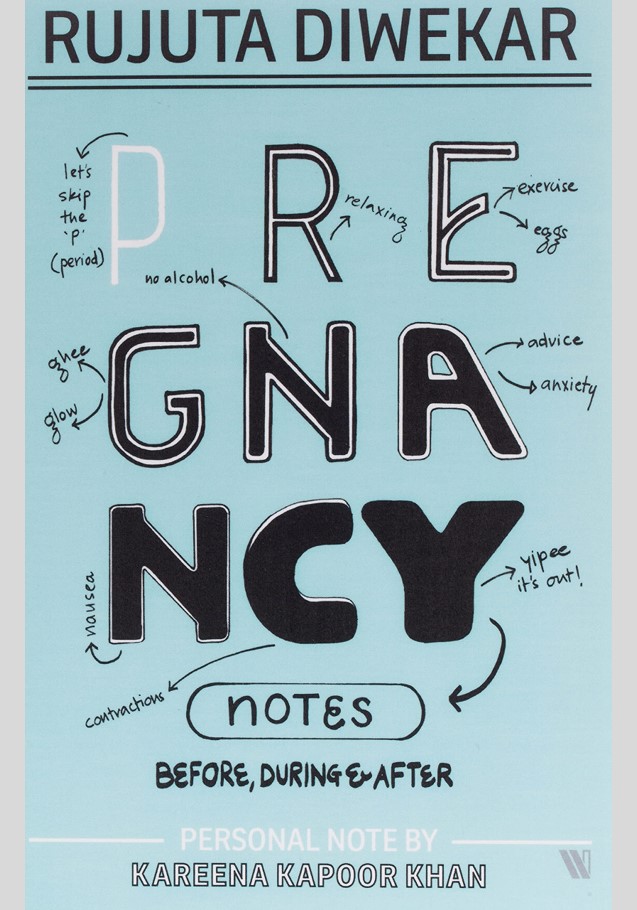 RUJUTA DIWEKAR
P R E
let's
skip
the
'p'
(period)
relaxing
exercise
eggs
no alcohol
G N A
ghee
glow
advice
anxiety
N C Y
nausea
yipee
it's out!
contractions
NOTES
BEFORE, DURING & AFTER
PERSONAL NOTE BY
KAREENA KAPOOR KHAN
W